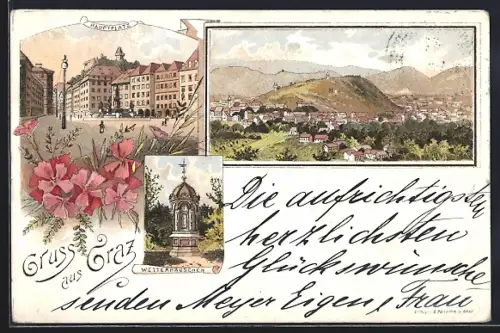 HAUPTPLATZ
WETTERHÄUSCHEN
Gruss
aus Graz
Die aufrichtigsten
herzlichsten
Glückwünsche
senden Meyer Eigen & Frau